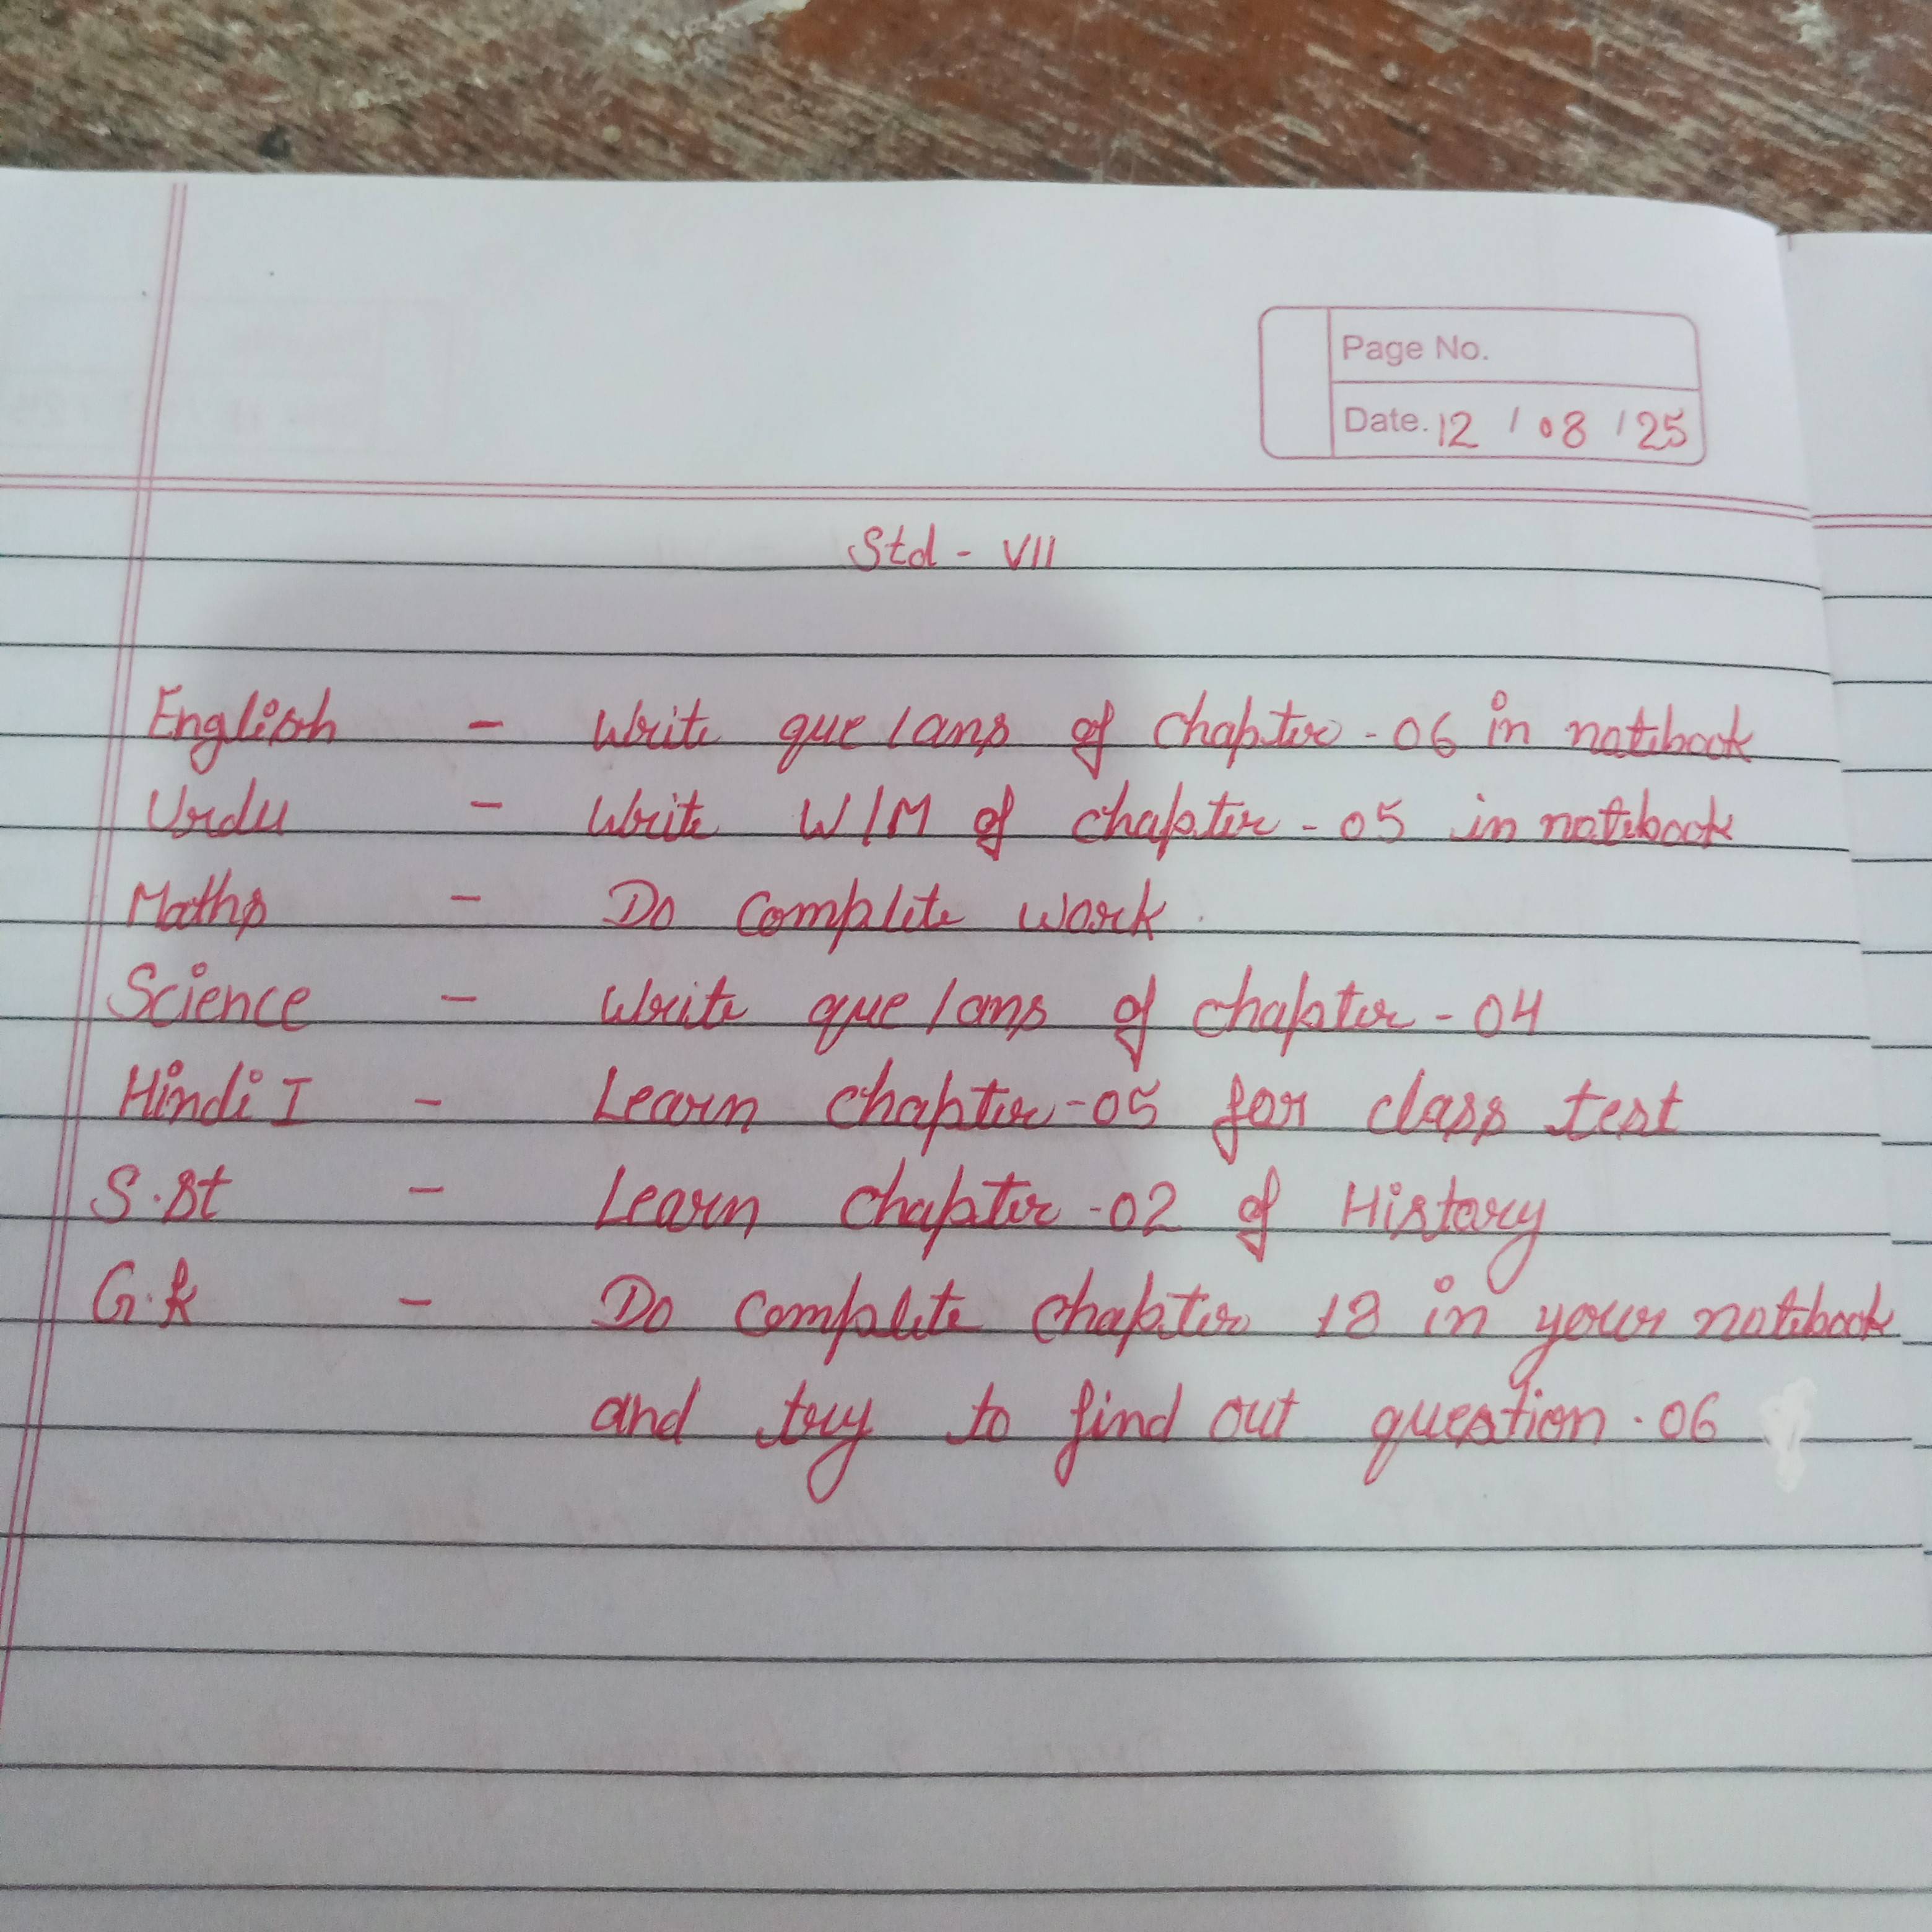 Page No.
Date. 12 / 08 / 25
Std - VII
English - Write que/ans of chapter - 06 in notebook
Urdu - Write W/M of chapter - 05 in notebook
Maths - Do complete work.
Science - Write que/ans of chapter - 04
Hindi I - Learn chapter - 05 for class test
S.St - Learn chapter - 02 of History
G.k - Do complete chapter 18 in your notebook
and try to find out question . 06